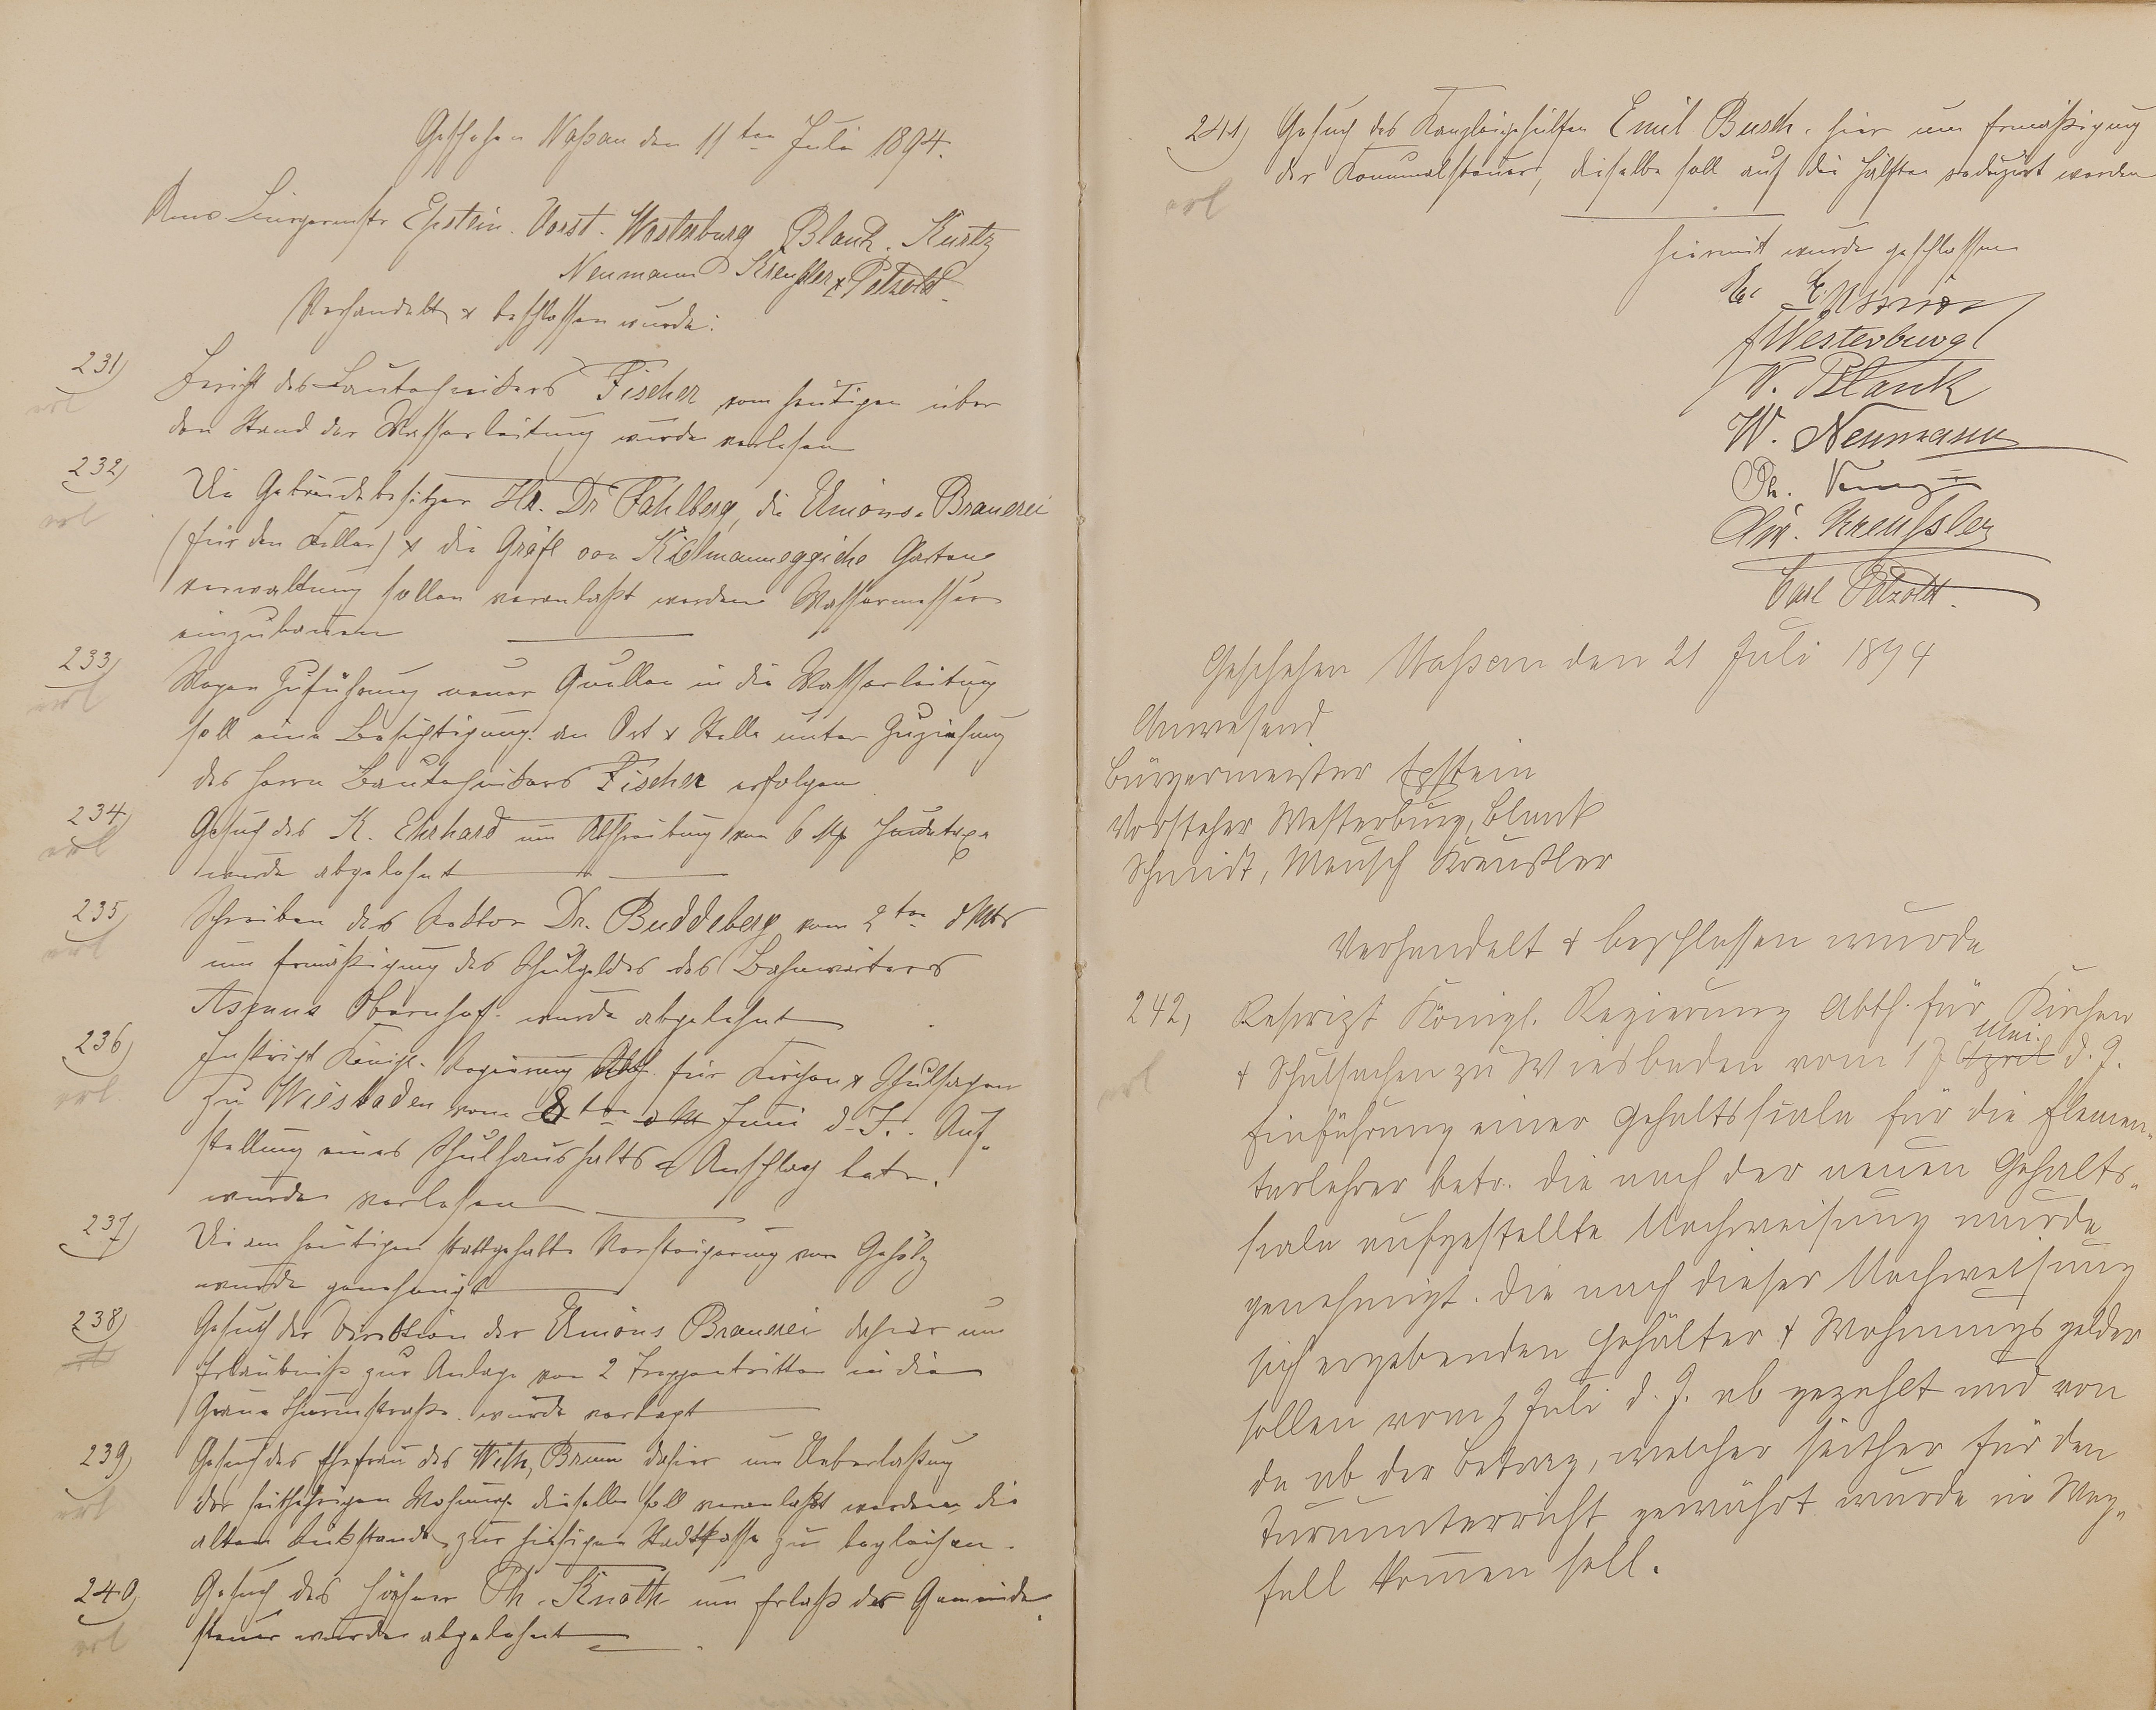 Geschehen Naßau den 11ten Juli 1894.
Anw. Bürgermstr Epstein. Vorst. Westerburg Blank. Kurtz
Neumann Kreußler & Petzold.
Verhandelt & beschlossen wurde:
231) Bericht des Bautechnikers Fischer vom heutigen über
erl
den Stand der Wasserleitung wurde verlesen
232) Die Gebäudebesitzer Hr. Dr Fahlberg, die Unions-Brauerei
erl
(für den Keller) & die Gräfl von Kielmannseggiche Garten
verwaltung sollen veranlaßt werden Wassermesser
einzubauen
233) Wegen Zuführung neuer Quellen in die Wasserleitung
erl
soll eine Besichtigung an Ort & Stelle unter Zuziehung
des Herrn Bautechnikers Fischer erfolgen
234) Gesuch des K. Ehrhard um Abschreibung von 6 M Hundetaxe
erl
wurde abgelehnt
235) Schreiben des Rektor Dr. Buddeberg vom 2ten d Mts
erl
um Ermäßigung des Schulgeldes des Bahnwärters
Asmus Obernhof wurde abgelehnt
236) Reskript Königl. Regierung Abth. für Kirchen & Schulsachen
erl.
zu Wiesbaden vom 8ten d M Juni d. J. Auf-
stellung eines Schulhaushalts-Anschlag betr.
wurde verlesen
237) Die am heutigen stattgehabte Versteigerung von Gehölz
wurde genehmigt
238) Gesuch der Direktion der Unions Brauerei dahier um
erl
Erlaubniß zur Anlage von 2 Treppentritten in die
Graue Thurmstraße wurde vertagt
239) Gesuch des Ehefrau des Wilh. Braun dahier um Ueberlaßung
erl
der seitherigen Wohnung dieselbe soll veranlaßt werden, die
alten Rückstände zur hiesigen Stadtkasse zu begleichen.
240) Gesuch des Ph. Knoth um Erlaß der Gemeinde-
erl
steuer wurde abgelehnt
241) Gesuch des Kanzleigehülfen Emil Busch. hier um Ermäßigung
erl
der Kommunalsteuer, dieselbe soll auf die Hälfte reduzirt werden
Hiermit wurde geschlossen
Epstein
Westerburg
W. Blank
W. Neumann
Ph.
Chr. Kreußler
Carl Petzold.
Geschehen Naßau den 21 Juli 1894
Anwesend
Bürgermeister Epstein
Vorsteher Westerburg, Blank
Schmidt, Mensch Kreußler
Verhandelt & beschlossen wurde
242, Reskript Königl. Regierung Abth. für Kirchen
Mai.
erl
& Schulsachen zu Wiesbaden vom 17 April d. J.
Einführung einer Gehaltsscala für die Elemen-
tarlehrer betr. Die nach der neuen Gehalts-
scala aufgestellte Nachweisung wurde
genehmigt. Die nach dieser Nachweisung
sich ergebenden Gehälter & Wohnungsgelder
sollen vom 1 Juli d. J. ab gezahlt und von
da ab der Betrag, welcher seither für den
Turnunterricht gewährt wurde in Weg-
fall kommen soll.